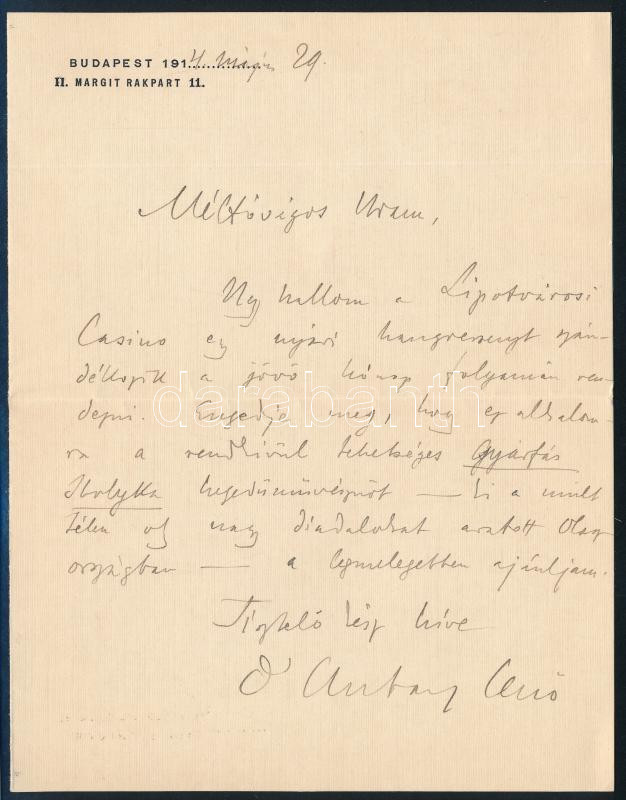 BUDAPEST 1914 május 29.
II. MARGIT RAKPART 11.
Méltóságos Uram,
Úgy hallom a Lipótvárosi
Casino egy nyári hangversenyt szán-
dékozik a jövő hónap folyamán ren-
dezni. Engedje meg, hogy ez alkalom-
ra a rendkívül tehetséges Gyárfás
Ibolyka hegedűművésznőt — ki a mult
télen oly nagy diadalokat aratott Olasz
országban — a legmelegebben ajánljam.
Tisztelő kész híve
darabanth